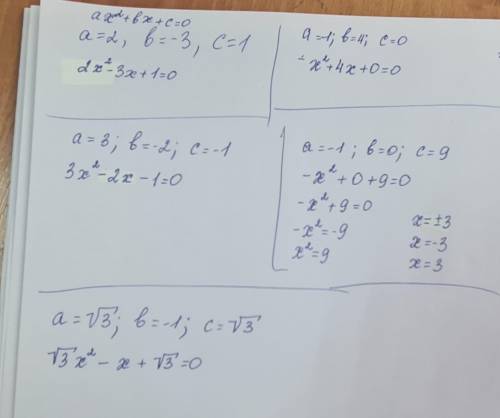 ax²+bx+c=0
a=2, b=-3, c=1
2x²-3x+1=0
a=-1; b=4; c=0
-x²+4x+0=0
a=3; b=-2; c=-1
3x²-2x-1=0
a=-1; b=0; c=9
-x²+0+9=0
-x²+9=0
-x²=-9
x²=9
x=±3
x=-3
x=3
a=√3; b=-1; c=√3
√3x²-x+√3=0